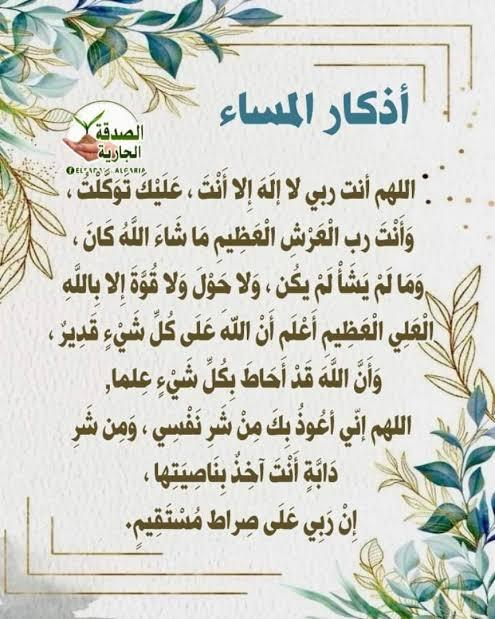 أذكار المساء
الصدقة
الجارية
اللهم أنت ربي لا إلَهَ إلا أَنْتَ ، عَلَيْكَ تَوَكَلْتُ ،
وَأَنْتَ رب الْعَرْشِ الْعَظِيمِ مَا شَاءَ اللَّهُ كَانَ ،
وَمَا لَمْ يَشَأْ لَمْ يَكُن ، وَلا حَوْلَ وَلا قُوَّةَ إلا بِاللَّهِ
الْعَلِي الْعَظِيمِ أَعْلَم أَنْ اللَّهَ عَلَى كُلِّ شَيْءٍ قَدِيرٌ ،
وَأَنَّ اللَّهَ قَدْ أَحَاطَ بِكُلِّ شَيْءٍ عِلما,
اللهم إنّي أعُوذُ بِكَ مِنْ شَر نَفْسِي ، وَمِن شَر
دَابَّةٍ أَنْتَ آخِذٌ بِنَاصِيَتِها ،
إنْ رَبِي عَلَى صِراط مُسْتَقِيمٍ.